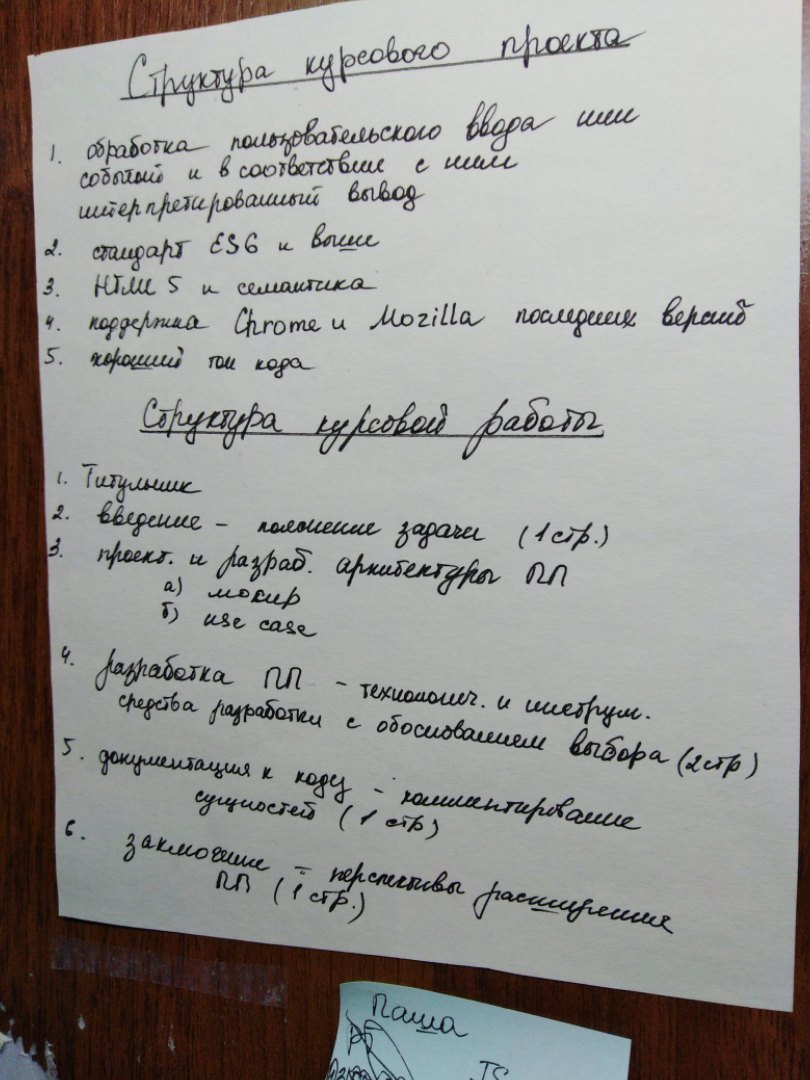 Структура курсового проекта
1. обработка пользовательского ввода или
событий и в соответствие с ним
интерпретированный вывод
2. стандарт ES6 и выше
3. HTML 5 и семантика
4. поддержка Chrome и Mozilla последних версий
5. хороший тон кода
Структура курсовой работы
1. Титульник
2. введение - положение задачи (1 стр.)
3. проект. и разраб. архитектуры ПП
а) мокир
б) use case
4. разработка ПП - технологич. и инструм.
средства разработки с обоснованием выбора (2 стр)
5. документация к коду - комментирование
сущностей (1 стр)
6. заключение - перспективы расширения
ПП (1 стр.)
Паша
JS